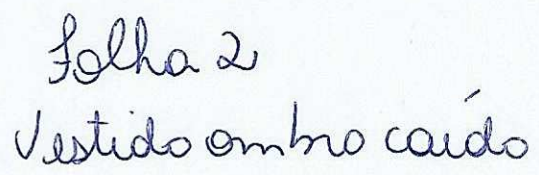 Folha 2
Vestido ombro caído